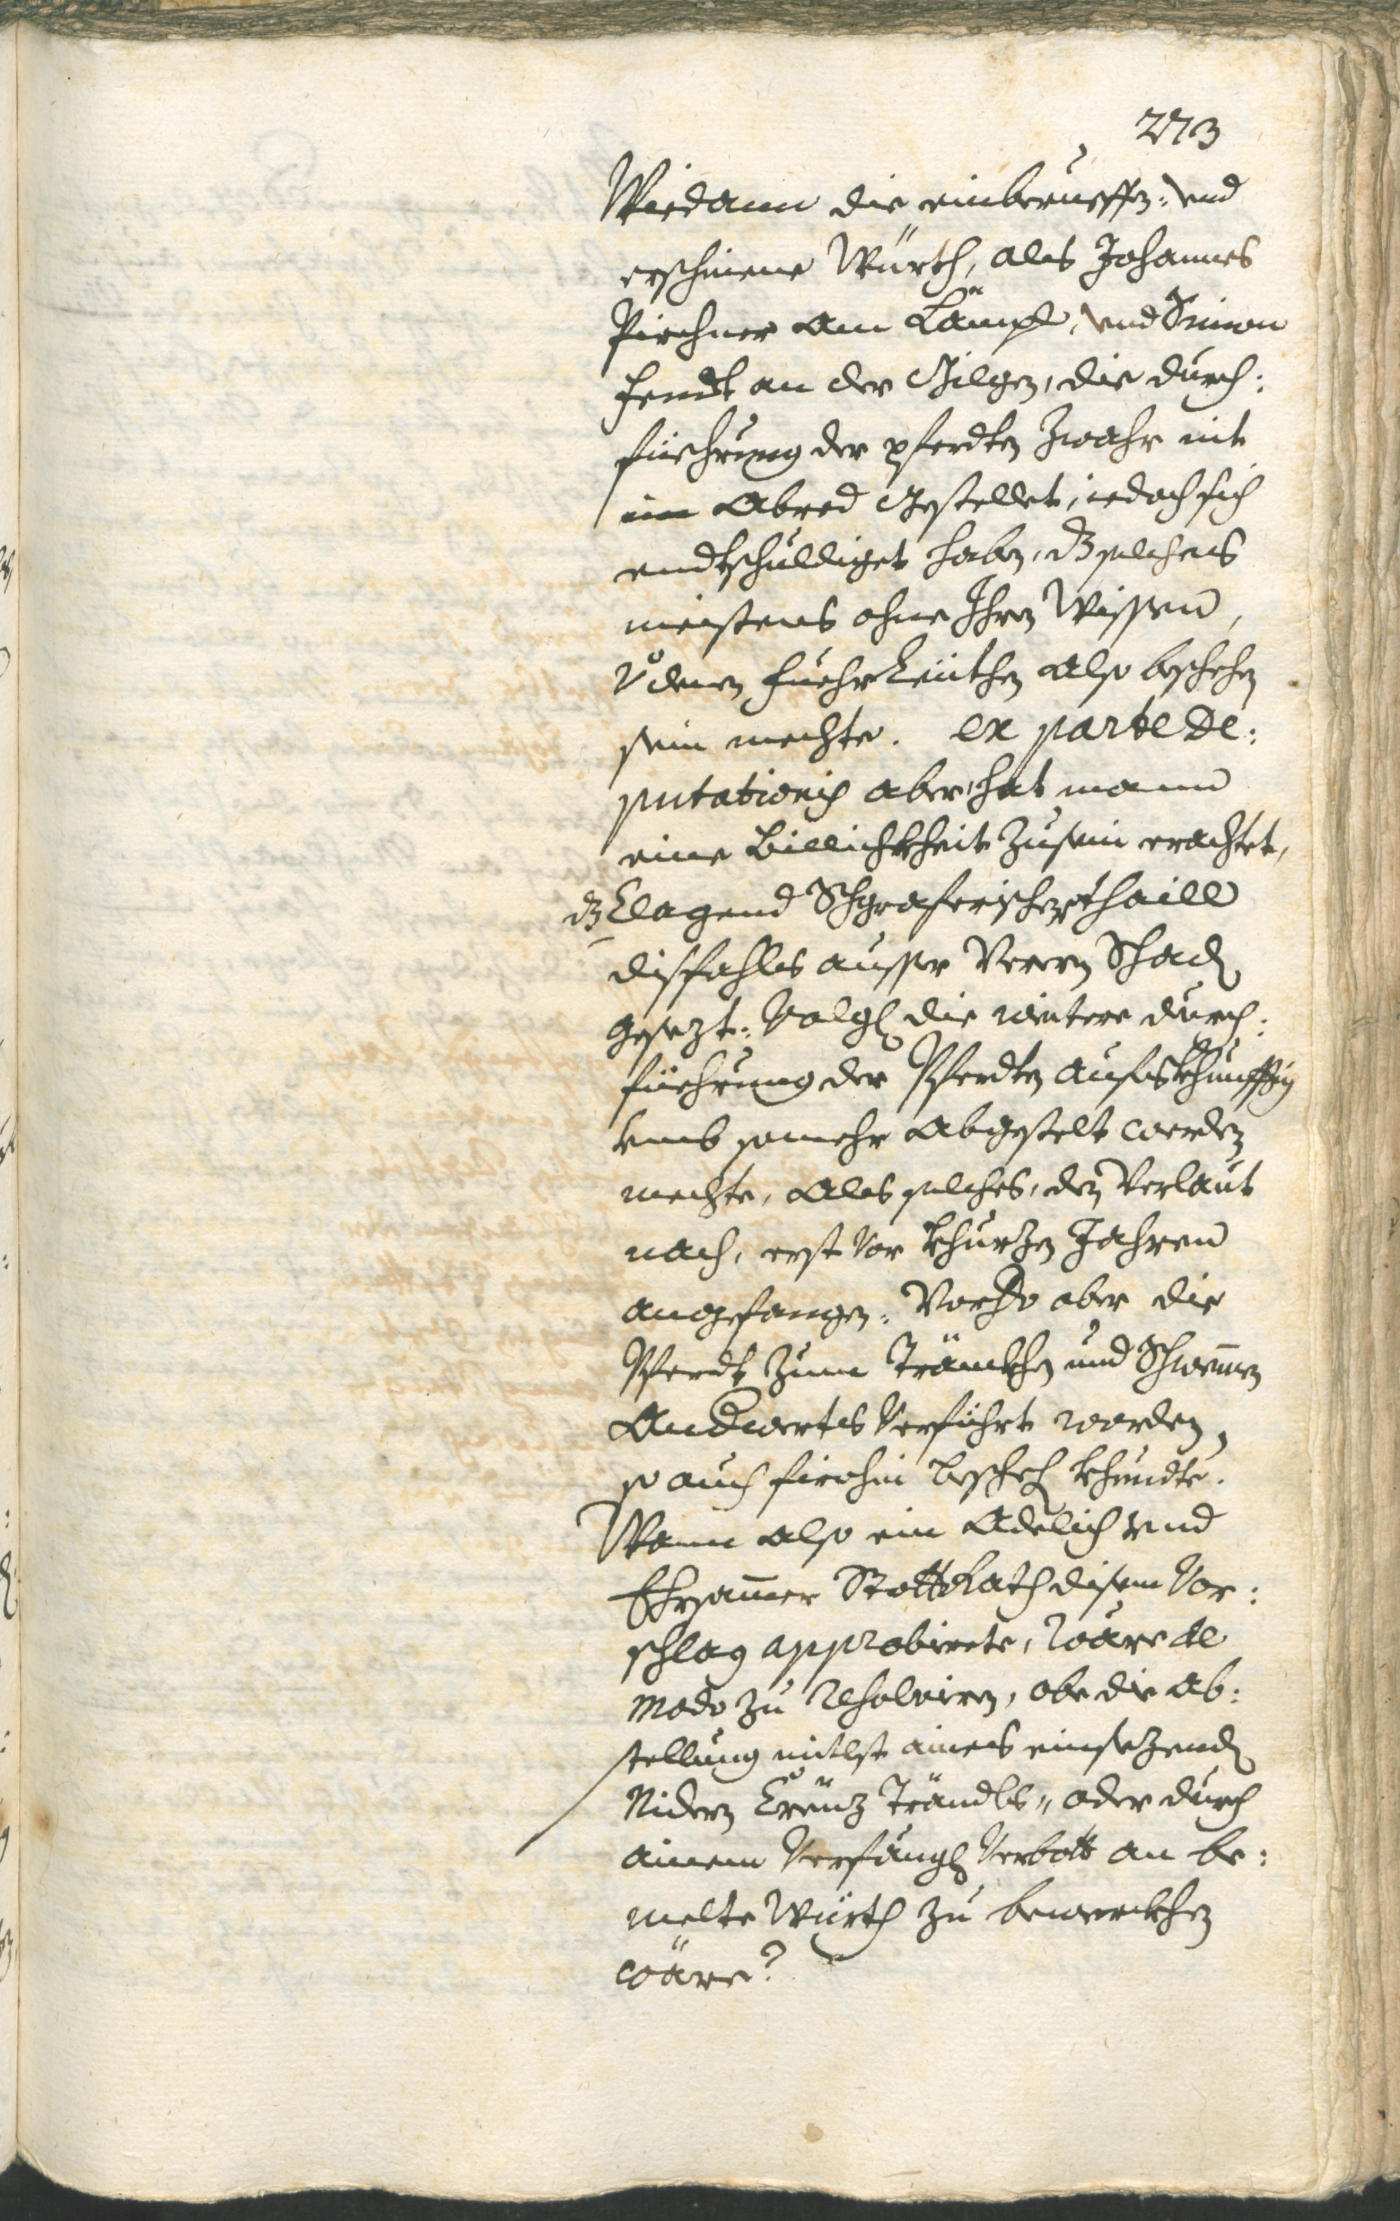 273
Wiedann die einberueffen: und
erschinene Würth, als Johannes
Pirchner am Lämpl, und Simon
Fendt an der Gilgen, die durch:
füehrung der pferdten zwahr nit
im Abred gestellet, iedoch sich
endtschuldiget haben, dz solches
meistens ohne Ihren Wissen,
von denen Fuehrleüthen also beschehen
sein mechte. ex parte De:
putationis aber hat mann
eine Billichkheit zusein erachtet,
dz Clagend Schgraferischer thaill
disfahls ausser Verern Schad
gesezt: Volgl die weitere durch:
füehrung der Pferdten aufs khünfftig
umb somehr abgestelt werden
mechte, als solches, den Verlaut
nach, erst vor khurzen Jahren
angefangen: Vorho aber die
Pferdt zum Tränkhen und Schwemen
Anderwerts verführt worden,
so auch firohin beschech khundte.
Wann also ein Adelich und
Ehrsammer StattRath disem Vor:
schlag approbirete, wäre de
modo zu resolviren, obe die ab:
stellung mitlst aines einsezend
Nidern Creüz Trändls, oder durch
ainem verfängl Verbott an be:
melte Würth zu bewerckhen
wäre?